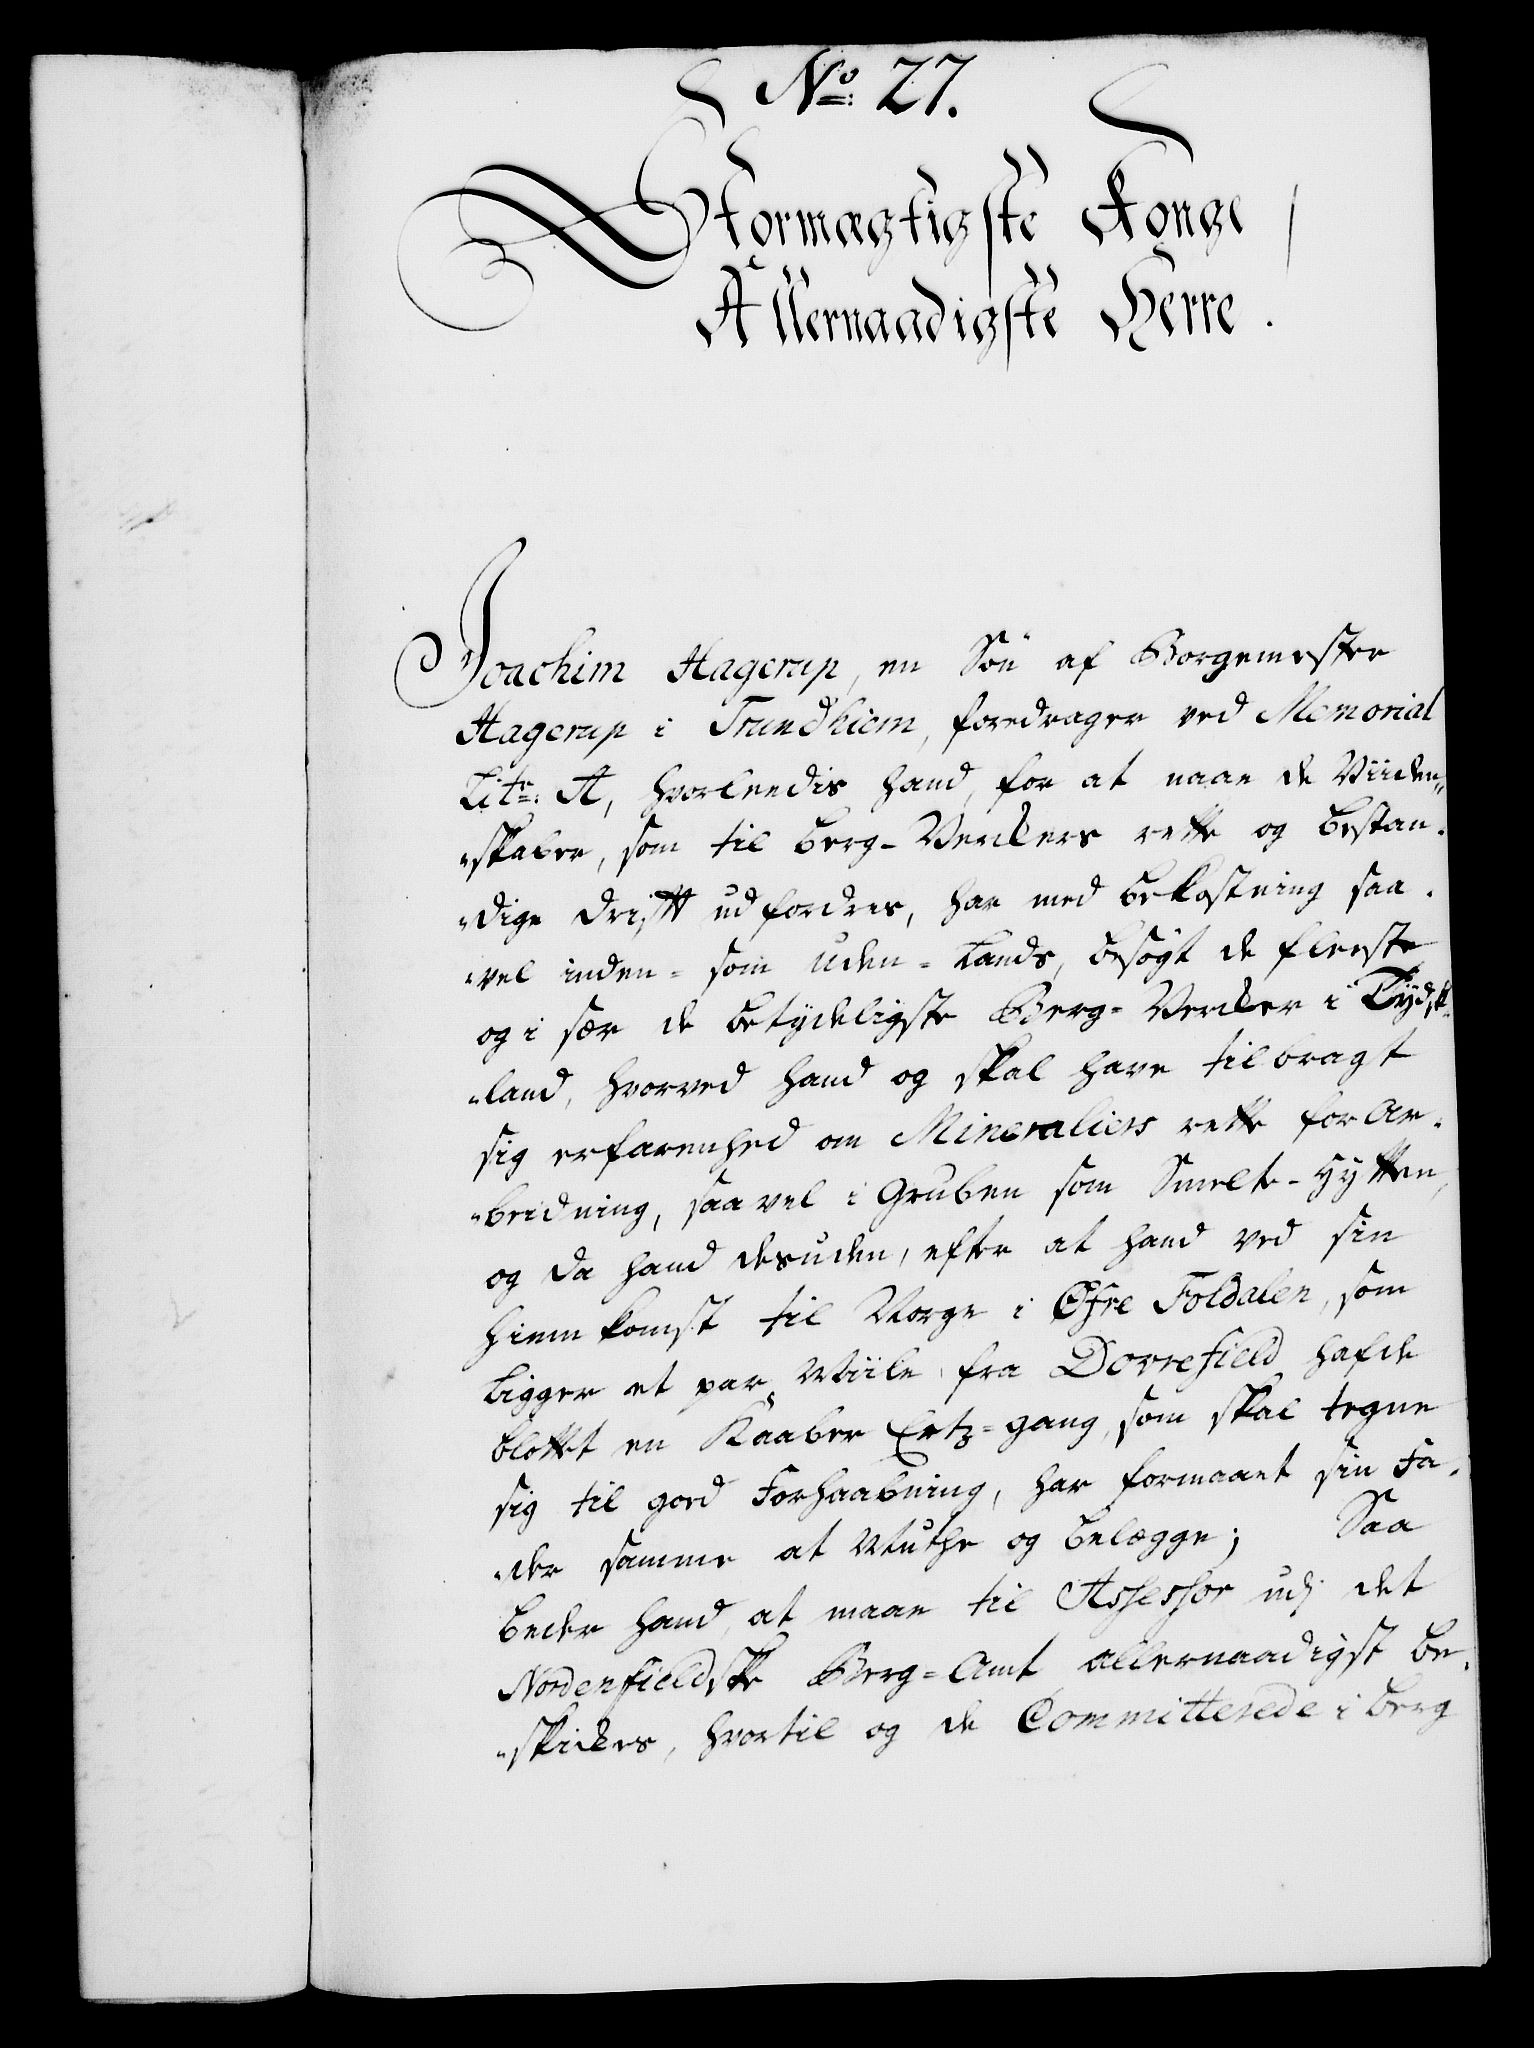 No: 27.
Stormægtigste Konge
Allernaadigste Herre.
Joachim Hagerup, en Søn af Borgemester
Hagerup i Trundhiem, foredrager ved Memorial
Litr: A, hvorleedis hand, for at naae de Viiden„
„skaber, som til Berg-Verckers rette og bestan-
„dige drifft udfordres, har med bekostning saa-
„vel inden- som uden-Lands, besøgt de fleeste
og i sær de betydeligste Berg-Vercker i Tydsk-
„land, hvorved hand og skal have tilbragt
sig erfarenhed om Mineraliers rette forAr-
„beidning, saavel i Gruben som Smelte-Hytten,
og da hand desuden, efter at hand ved sin
Hiemkomst til Norge i Øfre Foldalen, som
ligger et par Miile fra Dovrefield hafde
blottet en Kaaber Ertz-gang, som skal tegne
sig til goed Forhaabning, har formaaet sin Fa-
„der samme at Muthe og belægge; Saa
beder hand, at maae til Assessor udj det
Nordenfieldske Berg-Amt allernaadigst be-
„skickes, hvortil og de Committerede i Berg